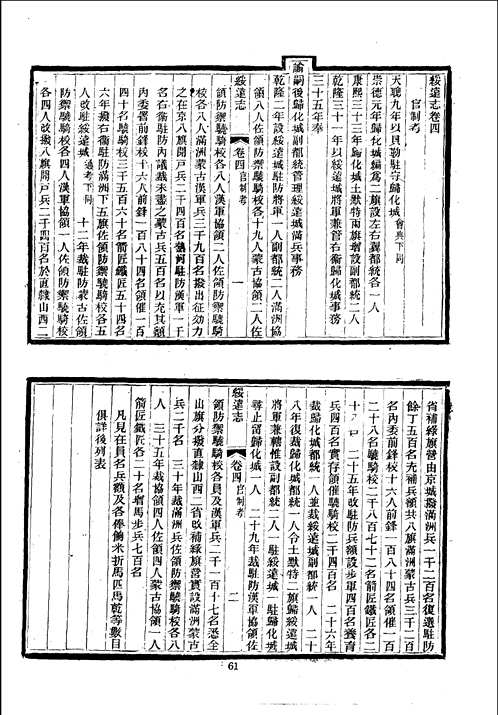 綏遠志卷四
官制考
天聰九年以貝勒駐守歸化城會典下同
崇德元年歸化城編爲二旗設左右翼都統各一人
康熙三十三年歸化城土默特兩旗增設副都統二人
乾隆三十一年以綏遠城將軍兼管右衞歸化城事務
三十五年奉
諭嗣後歸化城副都統管理綏遠城滿兵事務
乾隆二年設綏遠城駐防將軍一人副都統二人滿洲協
領八人佐領防禦驍騎校各四十人蒙古協領二人佐
綏遠志
卷四官制考
一
領防禦驍騎校各八人漢軍協領二人佐領防禦驍騎
校各八人滿洲蒙古漢軍兵三千九百名撥出征効力
之在京八旗開戶兵二千四百名熱河駐防漢軍一千
名右衞駐防內議裁未盡之蒙古兵五百名以充其額
內委署前鋒校十六人前鋒一百八十四名領催一百
四十名驍騎校三千五百六十名箭匠鐵匠五十四名
六年撥右衞駐防滿洲下五旗佐領防禦驍騎校各五
人改駐綏遠城通考下同 十二年裁駐防蒙古佐領
防禦驍騎校各四人漢軍協領一人佐領防禦驍騎校
各四人改撥八旗開戶兵二千四百名於直隸山西二
省補綠旗營由京城撥滿洲兵一千二百名復選駐防
餘丁五百名充補兵額共八旗滿洲蒙古兵三千二百
名內委前鋒校十六人前鋒一百八十四名領催一百
二十八名驍騎校二千八百七十二名箭匠鐵匠各二
十 二十五年改駐防兵額設步軍四百名養育
兵四百名實存領催驍騎校二千四百名 二十六年
裁歸化城都統一人並裁綏遠城副都統一人 二十
八年復裁歸化城都統一人令土默特二旗歸綏遠城
將軍兼轄惟設副都統二人一駐綏遠城一駐歸化城
尋止留歸化城一人 二十九年裁駐防漢軍協領佐
綏遠志
卷四官制考
二
領防禦驍騎校各員及漢軍兵二千一百十七名悉令
出旗分撥直隸山西二省改補綠旗營實設滿洲蒙古
兵二千名 三十年裁滿洲兵佐領防禦驍騎校各八
人 三十五年裁協領四人佐領四人蒙古協領一人
箭匠鐵匠各二十名增馬步兵七百名
凡見在員名兵額及各俸餉米折馬匹馬乾等數目
俱詳後列表
61